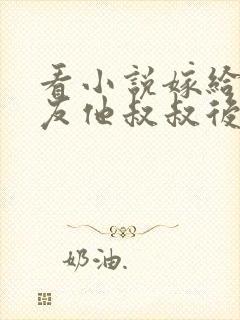 看小說嫁給
友他叔叔後
奶油.